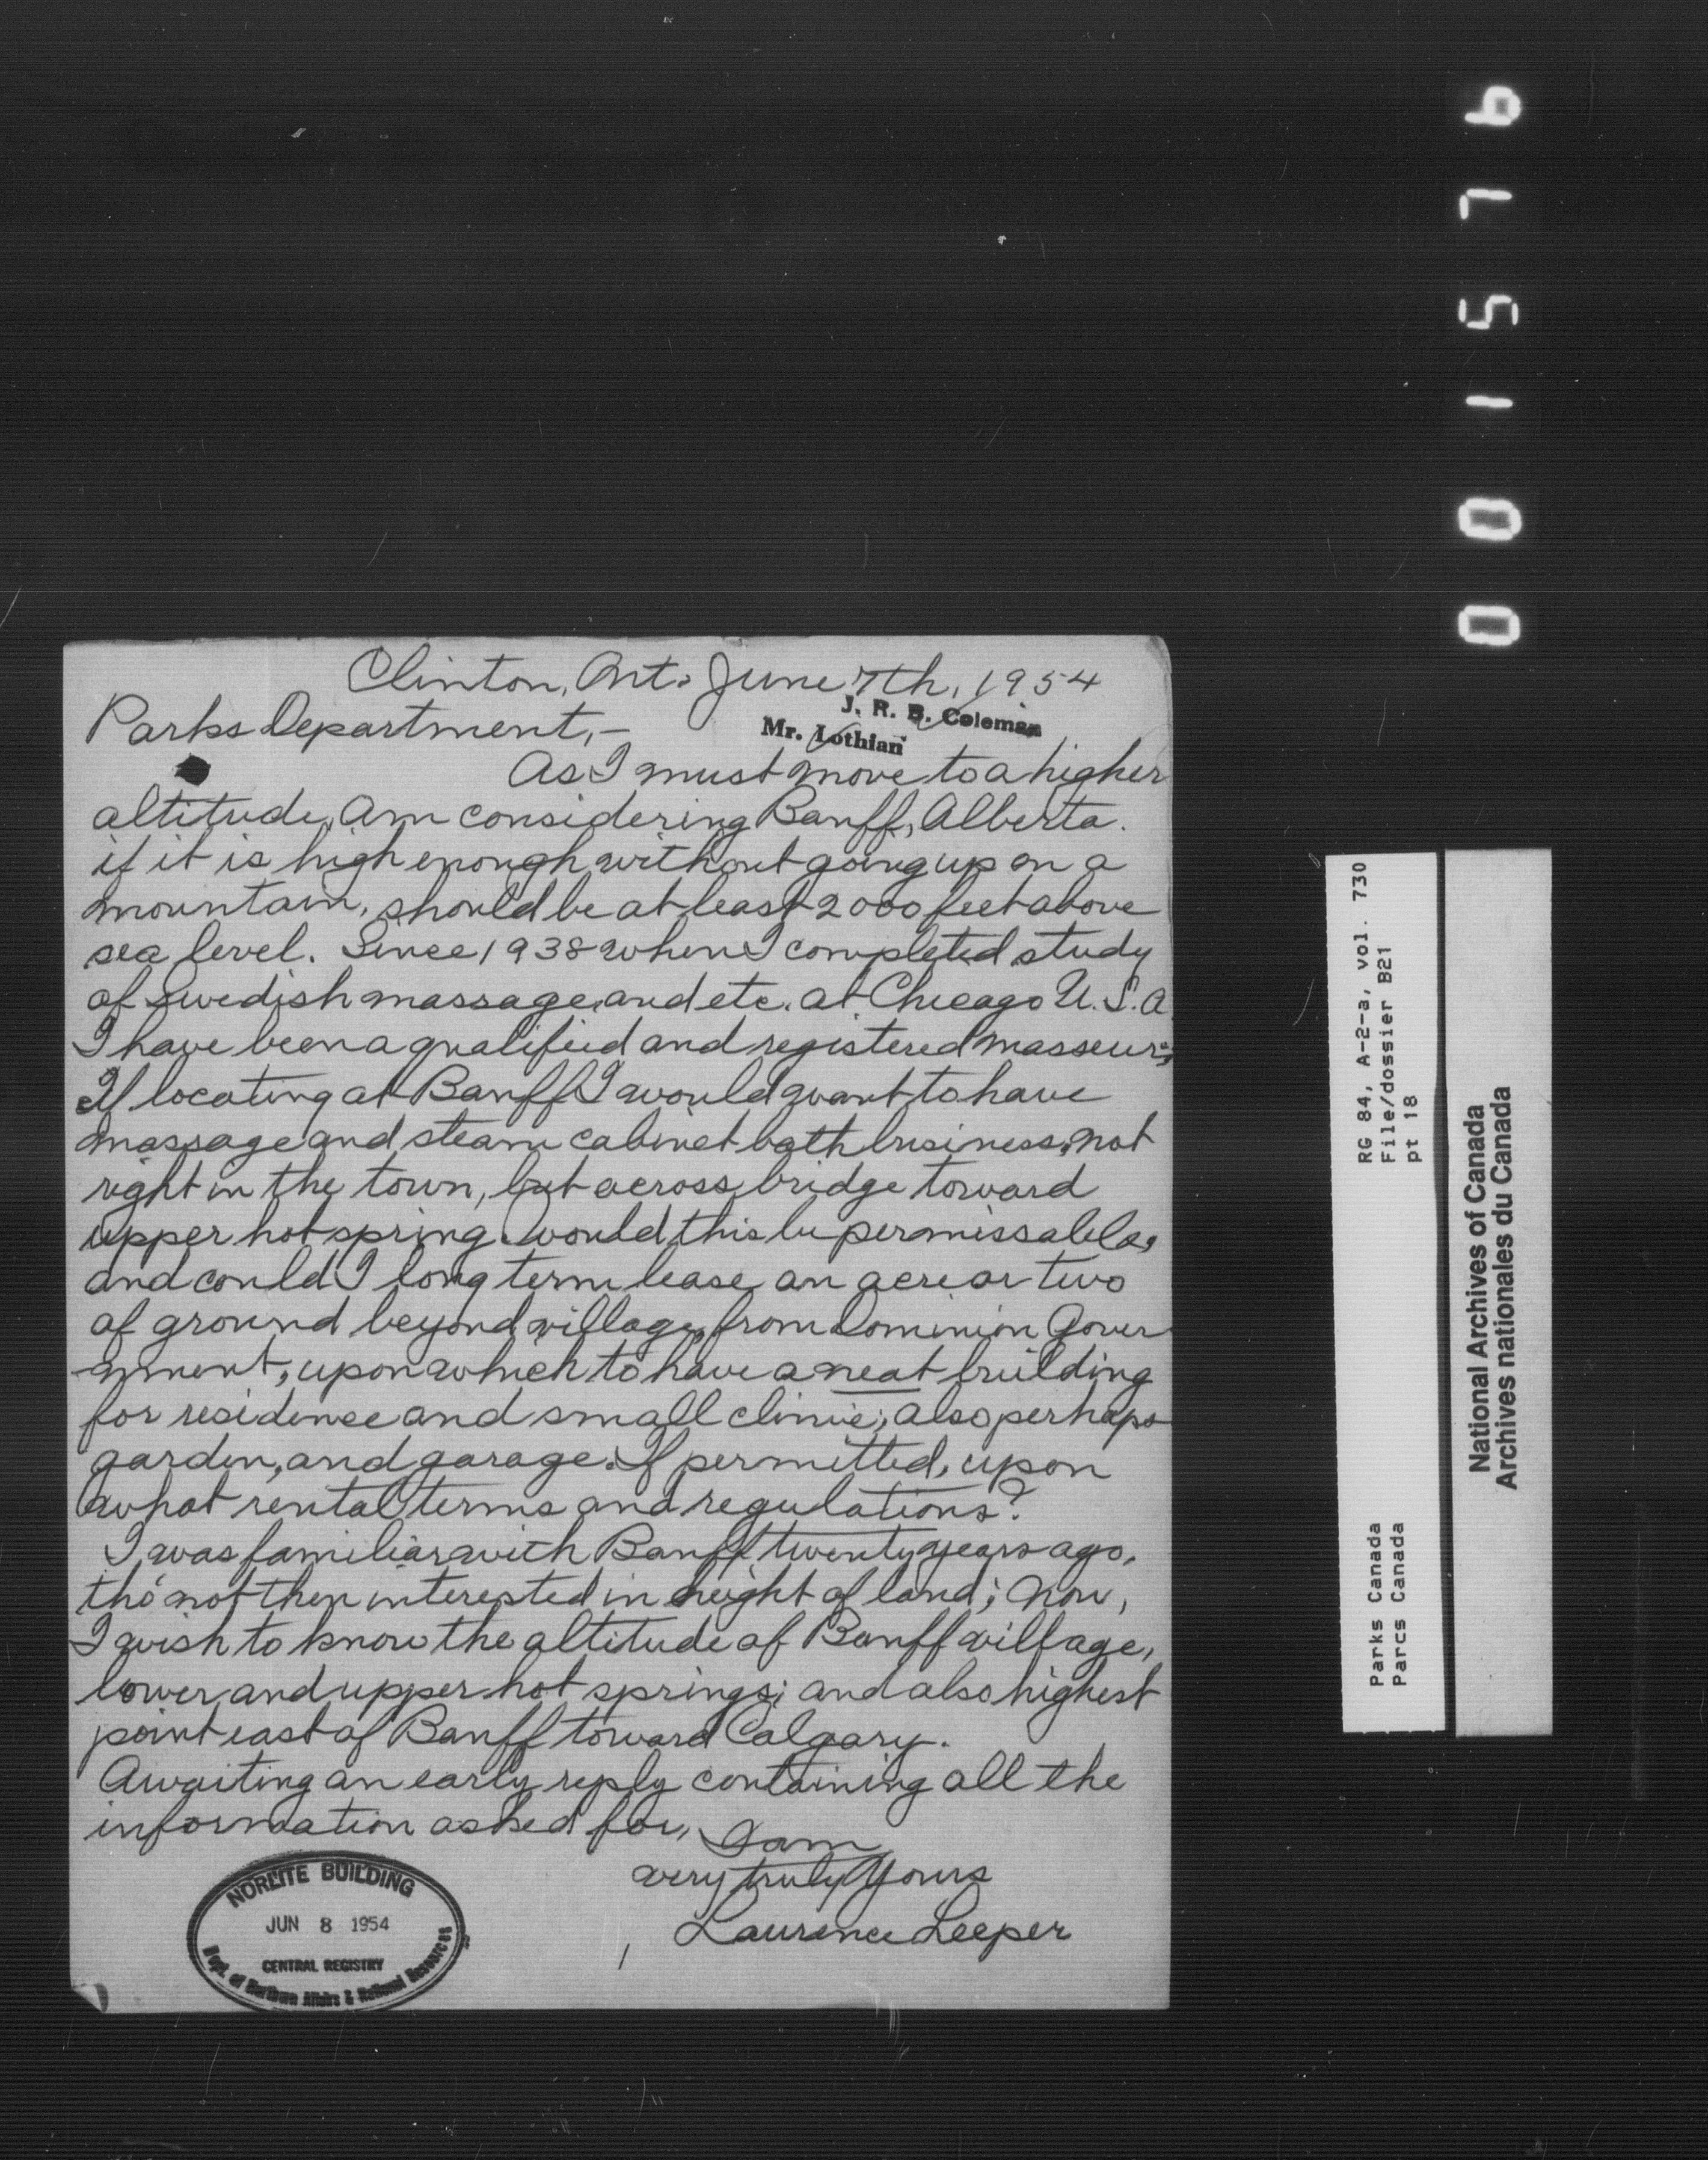 Clinton, Ont. June 7th, 1954
Parks Department,-
J. R. B. Coleman
Mr. Lothian
As I must move to a higher
altitude, am considering Banff, Alberta.
if it is high enough without going up on a
mountain, should be at least 2000 feet above
sea level. Since 1938 when I completed study
of Swedish massage, and etc. at Chicago U.S.A
I have been a qualified and registered masseur;
If locating at Banff I would want to have
massage and steam cabinet bath business, not
right in the town, but across bridge toward
upper hot spring. Would this be permissable,
and could I long term lease an acre or two
of ground beyond village, from Dominion Gover
-nment, upon which to have a neat building
for residence and small clinic; also perhaps
garden, and garage. If permitted, upon
what rental terms and regulations?
I was familiar with Banff twenty years ago,
tho' not then interested in height of land; now,
I wish to know the altitude of Banff village,
lower and upper hot springs; and also highest
point east of Banff toward Calgary.
Awaiting an early reply containing all the
information asked for, I am
very truly yours
Laurence Leeper
NORLITE BUILDING
JUN 8 1954
CENTRAL REGISTRY
Dept. of Northern Affairs & National Resources
001576
RG 84, A-2-a, vol. 730
File/dossier B21
pt 18
Parks Canada
Parcs Canada
National Archives of Canada
Archives nationales du Canada